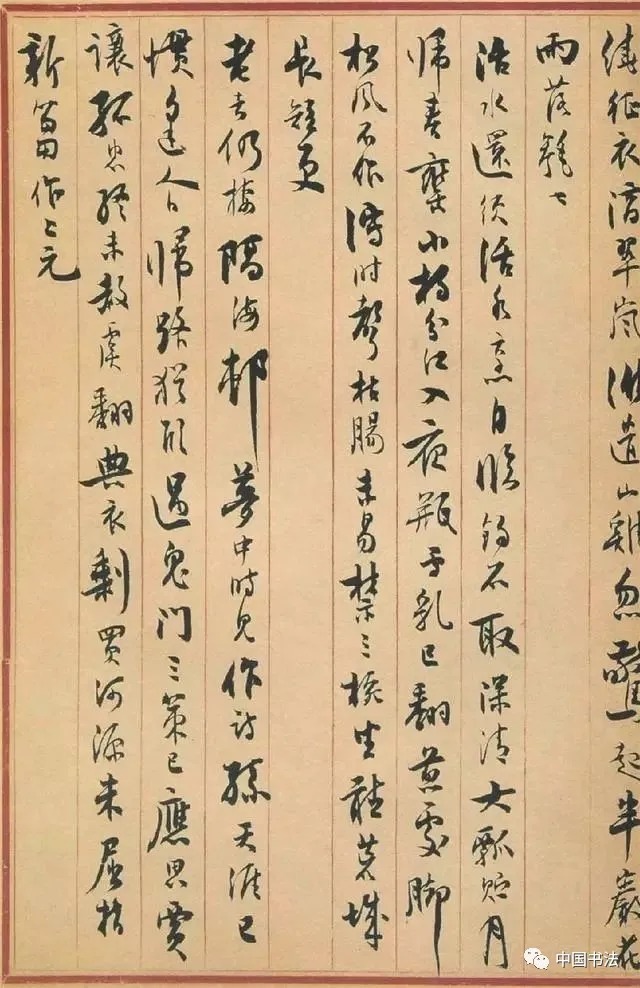 繞征衣滴翠嵐誰遣山雞忽驚起半巖花
雨落毿〻
活水還須活火烹自臨釣石取深清大瓢貯月
歸春甕小杓分江入夜瓶雪乳已翻煎處脚
松風忽作瀉時聲枯腸未易禁三椀坐聽荒城
長短更
老去仍棲隔海邨夢中時見作詩孫天涯已
慣逢人日歸路猶欣過鬼門三策已應思賈
讓孤忠終未赦虞翻典衣剩買河源米屈指
新篘作上元
中国书法